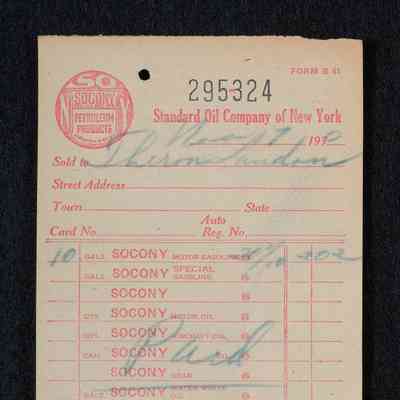 FORM B 41
SO
SOCONY
PETROLEUM
PRODUCTS
295324
Standard Oil Company of New York
Nov 17 19
Sold to Theron Landon
Street Address
Town State
Auto
Card No. Reg. No.
10 GALS. SOCONY MOTOR GASOLINE @
GALS. SOCONY SPECIAL GASOLINE @
SOCONY @
QTS. SOCONY MOTOR OIL @
QTS. SOCONY AIRCRAFT OIL @
CAN SOCONY @
SOCONY GEAR @
GALS. SOCONY WATER WHITE @
Paid